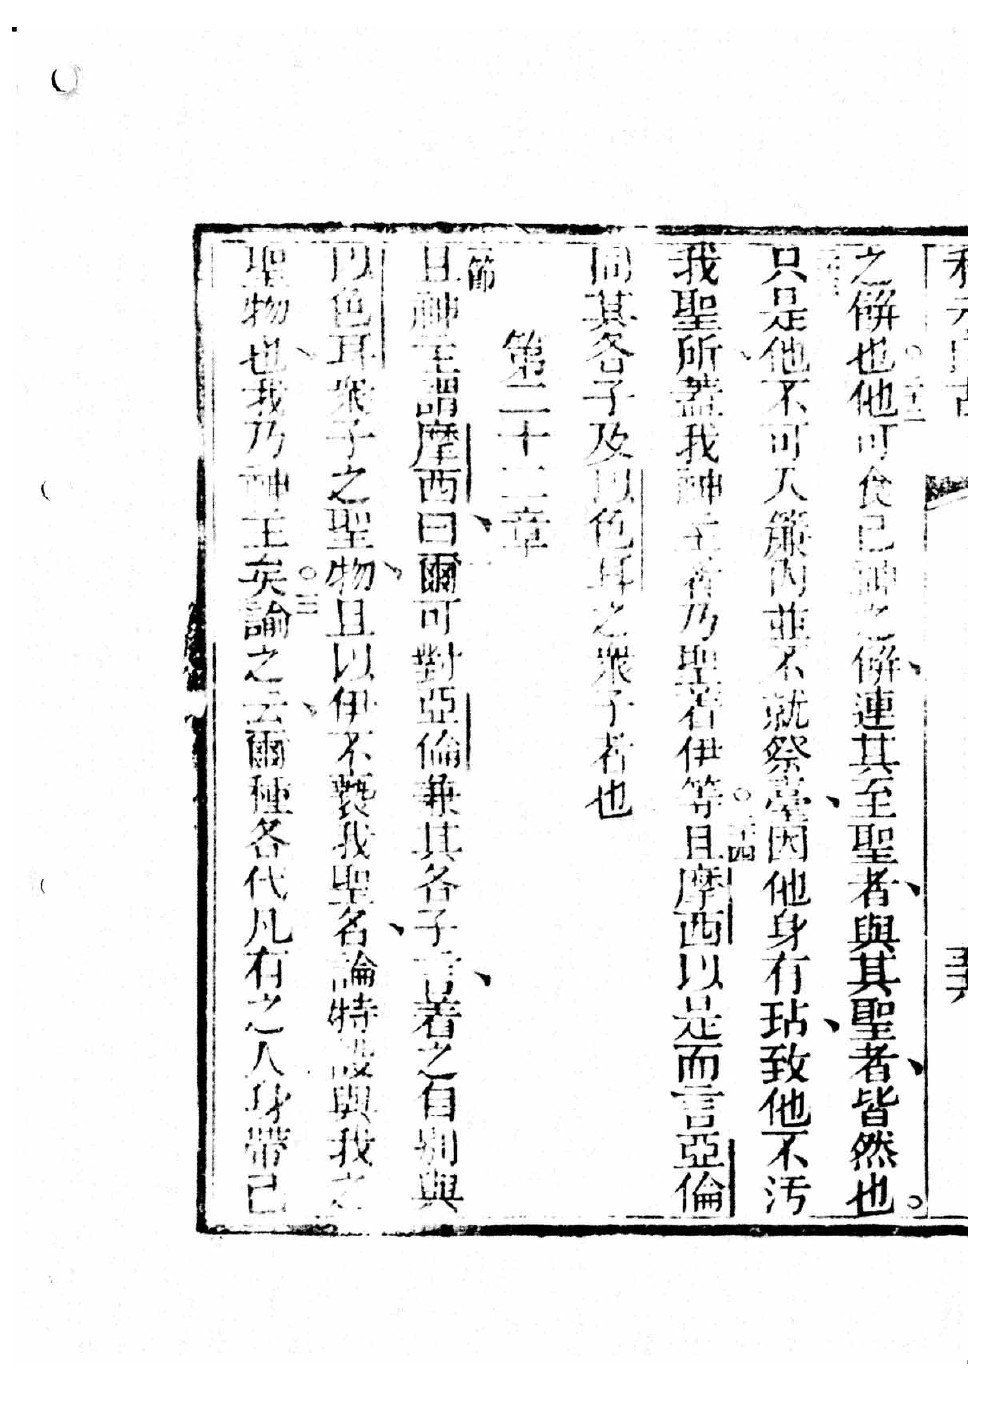 五六
之餅也他可食已神之餅連其至聖者與其聖者皆然也
只是他不可入簾內並不就祭臺因他身有玷致他不污
我聖所蓋我神主者乃聖著伊等且摩西以是而言亞倫
同其各子及以色耳之眾子者也
第二十二章
節
且神主謂摩西曰爾可對亞倫兼其各子言着之自別與
以色耳眾子之聖物且以伊不褻我聖名論特設與我之
聖物也我乃神主矣諭之云爾種各代凡有之人身帶己